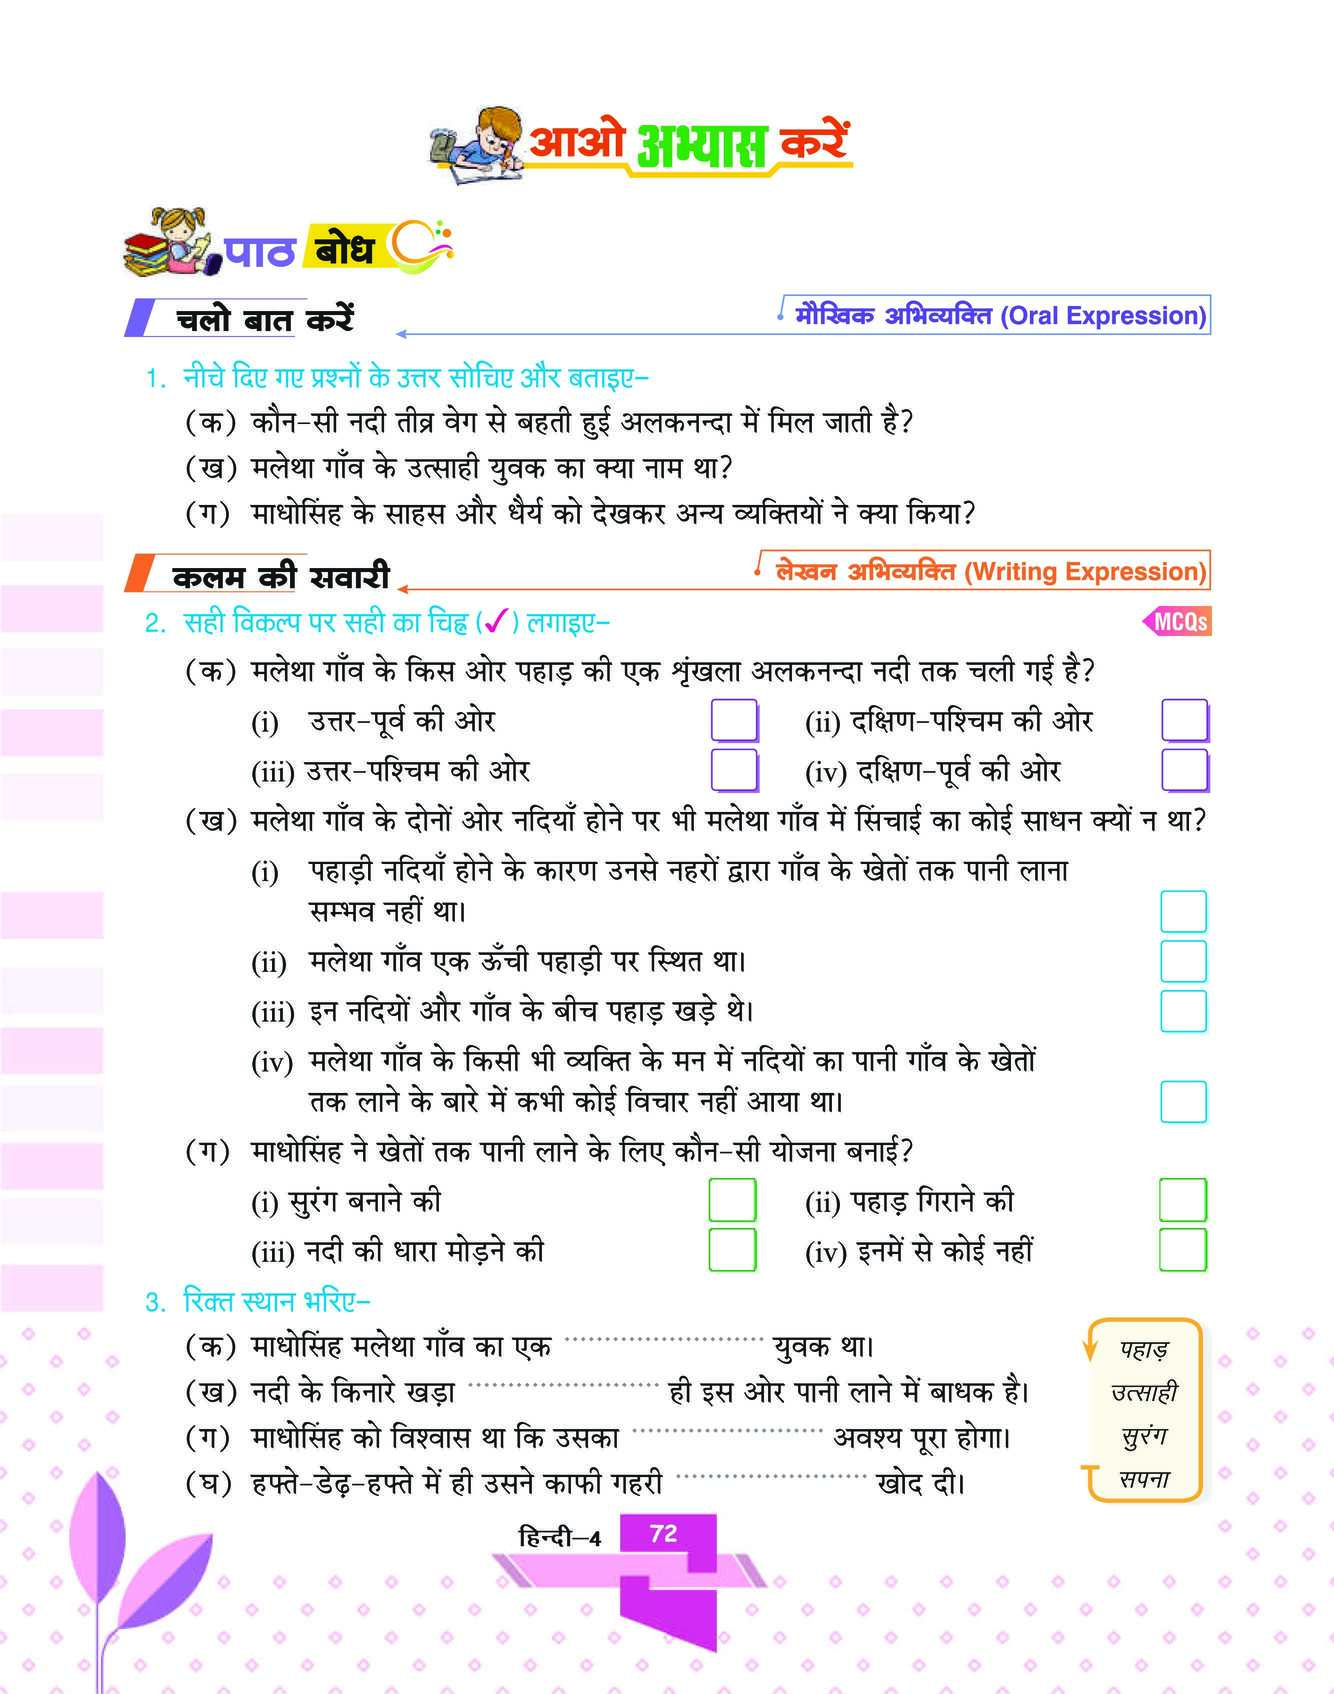 आओ अभ्यास करें
पाठ बोध
चलो बात करें
मौखिक अभिव्यक्ति (Oral Expression)
1. नीचे दिए गए प्रश्नों के उत्तर सोचिए और बताइए–
(क) कौन-सी नदी तीव्र वेग से बहती हुई अलकनन्दा में मिल जाती है?
(ख) मलेथा गाँव के उत्साही युवक का क्या नाम था?
(ग) माधोसिंह के साहस और धैर्य को देखकर अन्य व्यक्तियों ने क्या किया?
कलम की सवारी
लेखन अभिव्यक्ति (Writing Expression)
2. सही विकल्प पर सही का चिह्न (✓) लगाइए–
MCQs
(क) मलेथा गाँव के किस ओर पहाड़ की एक शृंखला अलकनन्दा नदी तक चली गई है?
(i) उत्तर-पूर्व की ओर (ii) दक्षिण-पश्चिम की ओर
(iii) उत्तर-पश्चिम की ओर (iv) दक्षिण-पूर्व की ओर
(ख) मलेथा गाँव के दोनों ओर नदियाँ होने पर भी मलेथा गाँव में सिंचाई का कोई साधन क्यों न था?
(i) पहाड़ी नदियाँ होने के कारण उनसे नहरों द्वारा गाँव के खेतों तक पानी लाना
सम्भव नहीं था।
(ii) मलेथा गाँव एक ऊँची पहाड़ी पर स्थित था।
(iii) इन नदियों और गाँव के बीच पहाड़ खड़े थे।
(iv) मलेथा गाँव के किसी भी व्यक्ति के मन में नदियों का पानी गाँव के खेतों
तक लाने के बारे में कभी कोई विचार नहीं आया था।
(ग) माधोसिंह ने खेतों तक पानी लाने के लिए कौन-सी योजना बनाई?
(i) सुरंग बनाने की (ii) पहाड़ गिराने की
(iii) नदी की धारा मोड़ने की (iv) इनमें से कोई नहीं
3. रिक्त स्थान भरिए–
(क) माधोसिंह मलेथा गाँव का एक ........................ युवक था।
(ख) नदी के किनारे खड़ा ........................ ही इस ओर पानी लाने में बाधक है।
(ग) माधोसिंह को विश्वास था कि उसका ........................ अवश्य पूरा होगा।
(घ) हफ्ते-डेढ़-हफ्ते में ही उसने काफी गहरी ........................ खोद दी।
पहाड़
उत्साही
सुरंग
सपना
हिन्दी–4
72